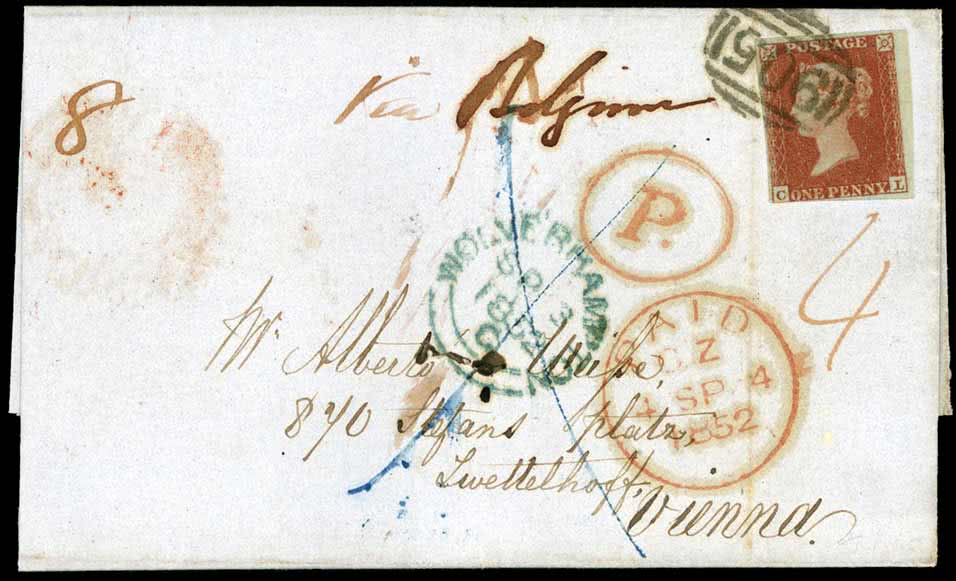 8 via Belgium
906
POSTAGE
C ONE PENNY L
P.
4
WOLVERHAMPTON
PAID
CZ
4 SP 4
1852
Mr. Alberto
870 Stefans platz,
Zwettelhoff,
Vienna.